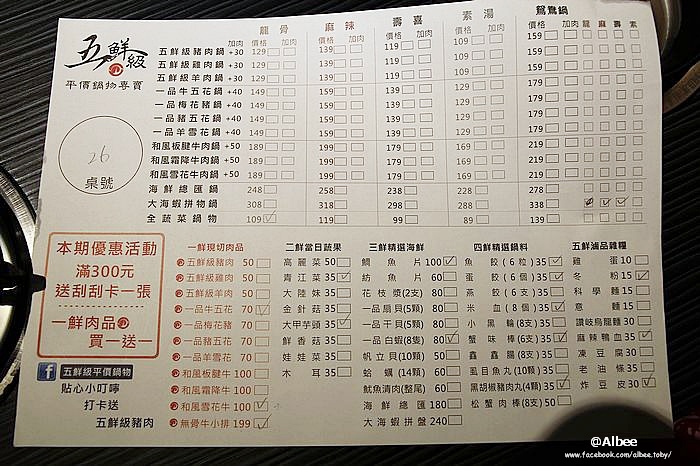 五鮮級
平價鍋物專賣
26
桌號
龍骨 麻辣 壽喜 素湯 鴛鴦鍋
加肉 價格 加肉 價格 加肉 價格 加肉 價格 加肉 價格 加肉 龍 麻 壽 素
五鮮級豬肉鍋 +30 129 139 119 109 159
五鮮級雞肉鍋 +30 129 139 119 109 159
五鮮級羊肉鍋 +30 129 139 119 109 159
一品牛五花鍋 +40 149 159 139 129 179
一品梅花豬鍋 +40 149 159 139 129 179
一品豬五花鍋 +40 149 159 139 129 179
一品羊雪花鍋 +40 149 159 139 129 179
和風板腱牛肉鍋 +50 189 199 179 169 219
和風霜降牛肉鍋 +50 189 199 179 169 219
和風雪花牛肉鍋 +50 189 199 179 169 219
海鮮總匯鍋 248 258 238 228 278
大海蝦拼物鍋 308 318 298 288 338
全蔬菜鍋物 109 118 99 89 139
本期優惠活動
滿300元
送刮刮卡一張
一鮮肉品
買一送一
f 五鮮級平價鍋物
貼心小叮嚀
打卡送
五鮮級豬肉
一鮮現切肉品
五鮮級豬肉 50
五鮮級雞肉 50
五鮮級羊肉 50
一品牛五花 70
一品梅花豬 70
一品豬五花 70
一品羊雪花 70
和風板腱牛 100
和風霜降牛 100
和風雪花牛 100
無骨牛小排 199
二鮮當日蔬果
高麗菜 50
青江菜 35
大陸妹 35
金針菇 35
大甲芋頭 35
鮮香菇 35
娃娃菜 35
木耳 35
三鮮精選海鮮
鯛魚片 100
魴魚片 60
花枝漿(2支) 80
一品扇貝(5顆) 80
一品干貝(5顆) 80
一品白蝦(8隻) 80
帆立貝(10顆) 50
蛤蠣(14顆) 60
魷魚清肉(整尾) 60
海鮮總匯 180
大海蝦拼盤 240
四鮮精選鍋料
魚餃(6粒) 35
蛋餃(6個) 35
燕餃(6支) 35
米血(8個) 35
小黑輪(8支) 35
蟹味棒(6支) 35
鑫鑫腸(8支) 35
虱目魚丸(10顆) 35
黑胡椒豬肉丸(4顆) 35
松蟹肉棒(8支) 50
五鮮滷品雜糧
雞蛋 10
冬粉 15
科學麵 15
意麵 15
讚岐烏龍麵 30
麻辣鴨血 35
凍豆腐 30
老油條 35
炸豆皮 30
@Albee
www.facebook.com/albee.toby/